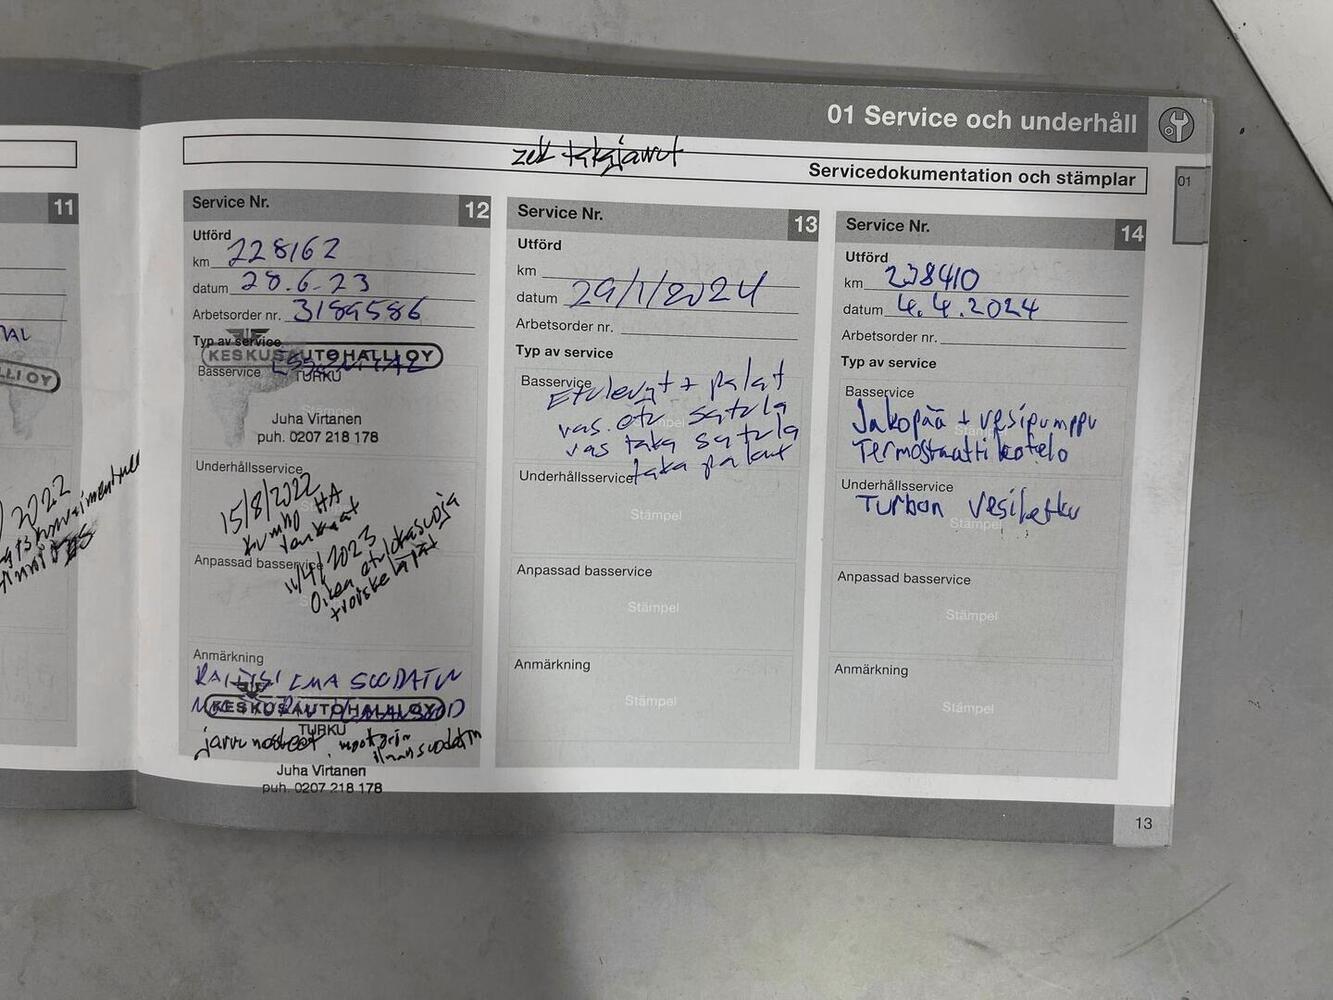 01 Service och underhåll
Servicedokumentation och stämplar
01
11
LLI OY
2022
Service Nr. 12
Utförd
km 228162
datum 28.6.23
Arbetsorder nr. 3189586
Typ av service
KESKUSAUTOHALLI OY
TURKU
Basservice
Juha Virtanen
puh. 0207 218 178
Underhållsservice
15/8/2022
Kumho HA
renkaat
11/4/2023
Oikea
Anpassad basservice
Anmärkning
RAITISILMA SUODATIN
KESKUSAUTOHALLI OY
TURKU
jarru nesteet, moottorin
ilmansuodatin
Juha Virtanen
puh. 0207 218 178
Service Nr. 13
Utförd
km
datum 29/1/2024
Arbetsorder nr.
Typ av service
Basservice
Etulevyt + palat
vas. etu satula
vas taka satula
taka palat
Underhållsservice
Stämpel
Anpassad basservice
Stämpel
Anmärkning
Stämpel
Service Nr. 14
Utförd
km 238410
datum 4.4.2024
Arbetsorder nr.
Typ av service
Basservice
Jakopää + vesipumppu
Termostaattikotelo
Underhållsservice
Turbon vesiletku
Stämpel
Anpassad basservice
Stämpel
Anmärkning
Stämpel
13